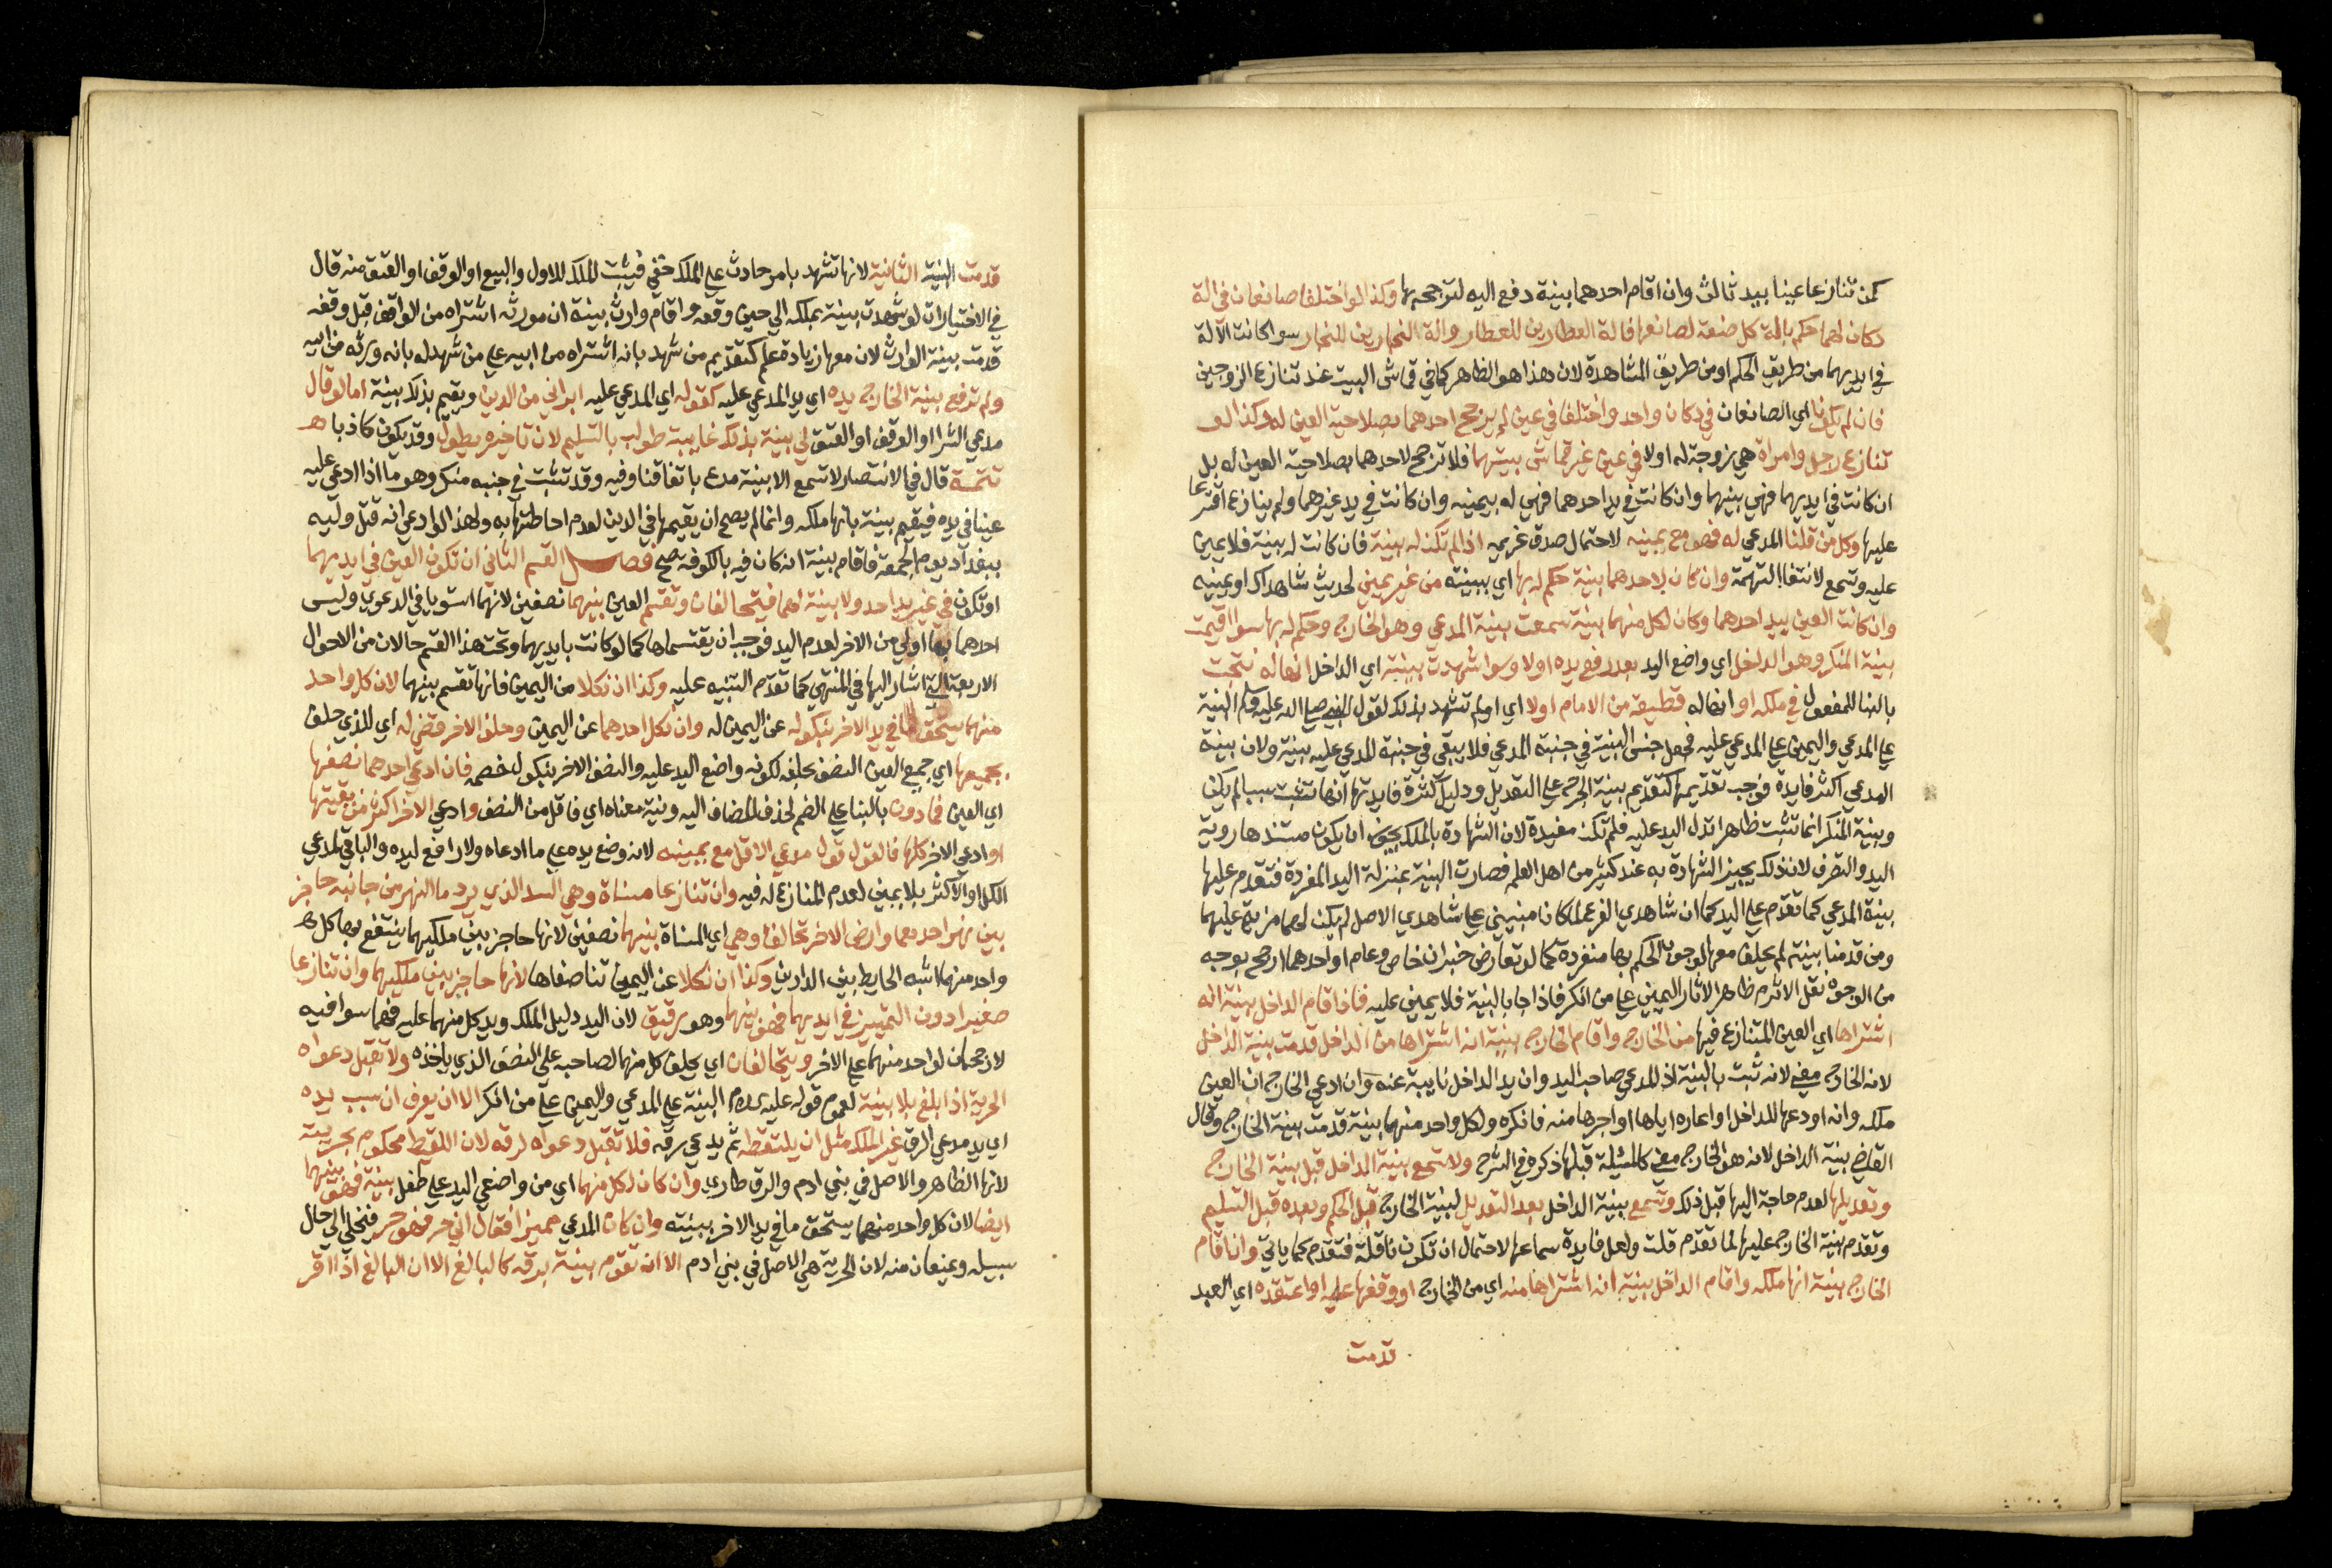 كمن تنازعا عينا بيد ثالث وان اقام احدهما بينة دفع اليه لترجحه بها وكذا لو اختلفا صانعان في الة
دكان لهما حكم بالة كل صنعة لصانعها فالة العطارين للعطار والة النجارين للنجار سوا كانت الآلة
في ايديهما من طريق الحكم او من طريق المشاهدة لان هذا هو الظاهر كما في قماش البيت عند تنازع الزوجين
فان لم يكونا اي الصانعان في دكان واحد واختلفا في عين لم يرجح احدهما بصلاحية العين له وكذا لو
تنازع رجل وامراة هي زوجة له اولا في عين غير قماش بيتهما فلا ترجح لاحدهما بصلاحية العين له بل
ان كانت في ايديهما فهي بينهما وان كانت في يد احدهما فهي له بيمينه وان كانت في يد غيرهما ولم ينازع اقترعا
عليها وكل من قلنا المدعي له فهو مع يمينه لاحتمال صدق غريمه اذا لم تكن له بينة فان كانت له بينة فلا يمين
عليه وتسمع لانتفا التهمة وان كان لاحدهما بينة حكم له بها اي ببينته من غير يمين لحديث شاهداك او يمينه
وان كانت العين بيد احدهما وكان لكل منهما بينة سمعت بينة المدعي وهو الخارج وحكم له بها سوا اقيمت
بينة المنكر وهو الداخل اي واضع اليد بعد رفع يده اولا وسوا شهدت بينته اي الداخل انها له نتجت
بالبنا للمفعول في ملكه او انها له قطيعة من الامام اولا اي او لم تشهد بذلك لقول النبي صلى الله عليه وسلم البينة
على المدعي واليمين على المدعى عليه فجعل جنس البينة في جنبة المدعي فلا يبقى في جنبة المدعى عليه بينة ولان بينة
المدعي اكثر فايدة فوجب تقديمها كتقديم بينة الجرح على التعديل ودليل كثرة فايدتها انها تثبت سببا لم يكن
وبينة المنكر انما تثبت ظاهرا تدل اليد عليه فلم تكن مفيدة لان الشهادة بالملك يجوز ان يكون مستندها روية
اليد والتصرف لان ذلك يجيز الشهادة به عند كثير من اهل العلم فصارت البينة بمنزلة اليد المفردة فتقدم عليها
بينة المدعي كما تقدم على اليد كما ان شاهدي الفرع لما كانا مبنيين على شاهدي الاصل لم يكن لهما مزية عليهما
ومن قدمنا بينته لم يحلف معها لوجوب الحكم بها منفردة كما لو تعارض خبران خاص وعام او احدهما ارجح بوجه
من الوجوه نقل الاثرم ظاهر الاثار اليمين على من انكر فاذا جا بالبينة فلا يمين عليه فاذا اقام الداخل بينة انه
اشتراها اي العين المتنازع فيها من الخارج واقام الخارج بينة انه اشتراها من الداخل قدمت بينة الداخل
لانه الخارج معنى لانه ثبت بالبينة ان المدعي صاحب اليد وان يد الداخل نايبة عنه وان ادعى الخارج ان العين
ملكه وانه اودعها للداخل او اعاره اياها او اجرها منه فانكره ولكل واحد منهما بينة قدمت بينة الخارج وقال
القاضي بينة الداخل لانه هو الخارج معنى كالمسئلة قبلها ذكره في الشرح ولا تسمع بينة الداخل قبل بينة الخارج
وتعديلها لعدم حاجة اليها قبل ذلك وتسمع بينة الداخل بعد التعديل لبينة الخارج قبل الحكم وبعده قبل التسليم
وتقدم بينة الخارج عليها لما تقدم قلت ولعل فايدة سماعها لاحتمال ان تكون ناقلة فتقدم كما ياتي وان اقام
الخارج بينة انها ملكه واقام الداخل بينة انه اشتراها منه اي من الخارج او وقفها عليه او اعتقده اي العبد
قدمت
قدمت البينة الثانية لانها تشهد بامر حادث على الملك خفي فيثبت الملك للاول والبيع او الوقف او العتق منه قال
في الاختيارات لو شهدت بينة بملكه الى حين وقفه واقام وارث بينة ان مورثه اشتراه من الواقف قبل وقفه
قدمت بينة الوارث لان معها زيادة علم كتقديم من شهد بانه اشتراه من ابيه على من شهد له بانه ورثه من ابيه
ولم ترفع بينة الخارج يده اي يد المدعى عليه كقوله اي المدعى عليه ابراني من الدين ويقيم بذلك بينة اما لو قال
مدعي الشرا او الوقف او العتق لي بينة بذلك غايبة طولب بالتسليم لان تاخيره يطول وقد يكون كاذبا
تتمة قال في الانتصار لا تسمع الا بينة مدع باتفاقنا وفيه وقد تثبت في جنبه منكر وهو ما اذا ادعي عليه
عينا في يده فيقيم بينة بانها ملكه وانما لم يصح ان يقيمها في الدين لعدم احاطتها به ولهذا لو ادعى انه قتل وليه
ببغداد يوم الجمعة فاقام بينة انه كان فيه بالكوفة صح فصل القسم الثاني ان تكون العين في ايديهما
او تكون في غير يد احد ولا بينة لهما فيتحالفان وتقسم العين بينهما نصفين لانهما استويا في الدعوى وليس
احدهما بها اولى من الاخر لعدم اليد فوجب ان يقتسماها كما لو كانت بايديهما وتحت هذا القسم حالان من الاحوال
الاربعة التي اشار اليها في المنتهى كما تقدم التنبيه عليه وكذا ان نكلا من اليمين فانها تقسم بينهما لان كل واحد
منهما يستحق ما في يد الاخر بنكوله عن اليمين له وان نكل احدهما عن اليمين وحلف الاخر قضي له اي للذي حلف
بجميعها اي جميع العين النصف بحلفه لكونه واضع اليد عليه والنصف الاخر بنكول خصمه فان ادعى احدهما نصفها
اي العين فما دون بالبنا على الضم لحذف المضاف اليه ونية معناه اي فاقل من النصف وادعى الاخر اكثر من بقيتها
او ادعى الاخر كلها فالقول قول مدعي الاقل مع يمينه لانه وضع يده على ما ادعاه ولا رافع ليده والباقي لمدعي
الكل او الاكثر بلا يمين لعدم المنازع له فيه وان تنازعا مسناة وهي السد الذي يرد ما النهر من جانبه حاجز
بين نهر احدهما وارض الاخر تحالفا وهي اي المسناة بينهما نصفين لانها حاجز بين ملكيهما ينتفع بها كل
واحد منهما اشبه الحايط بين الدارين وكذا ان نكلا عن اليمين تناصفاها لانها حاجز بين ملكيهما وان تنازعا
صغيرا دون التمييز في ايديهما فهو بينهما وهو رقيق لان اليد دليل الملك ويد كل منهما عليه فهما سوا فيه
لا رجحان لواحد منهما على الاخر ويتحالفان اي يحلف كل منهما لصاحبه على النصف الذي ياخذه ولا تقبل دعواه
الحرية اذا بلغ بلا بينة لعموم قوله عليه السلام البينة على المدعي واليمين على من انكر الا ان يعرف ان سبب يده
اي يد مدعي الرق غير الملك مثل ان يلتقطه ثم يدعي رقه فلا تقبل دعواه لرقه لان اللقيط محكوم بحريته
لانها الظاهر والاصل في بني ادم والرق طاري وان كان لكل منهما اي من واضعي اليد على طفل بينة فهو بينهما
ايضا لان كل واحد منهما يستحق ما في يد الاخر ببينته وان كان المدعى مميزا فقال اني حر فهو حر فيخلى الى حال
سبيله ويمنعان منه لان الحرية هي الاصل في بني ادم الا ان تقوم بينة برقه كالبالغ الا ان البالغ اذا اقر